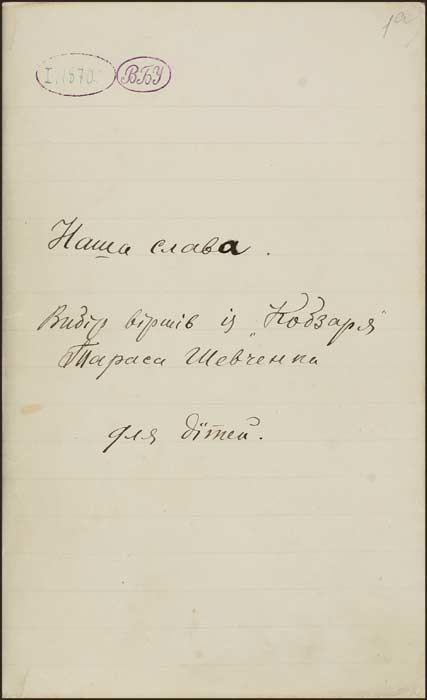 1а
I, 1570.
ВБУ
Наша слава.
Вибір віршів із „Кобзаря“
Тараса Шевченка
для дїтей.